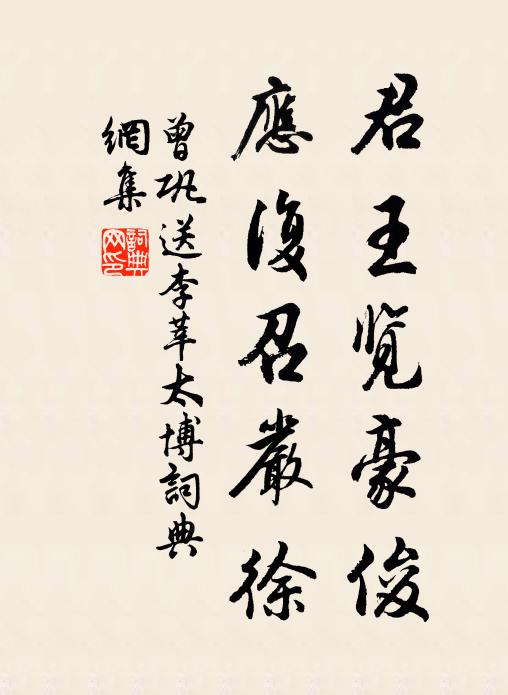 君王览豪俊
應復召嚴徐
曾巩送李莘太博詞典
網集
詞典網印